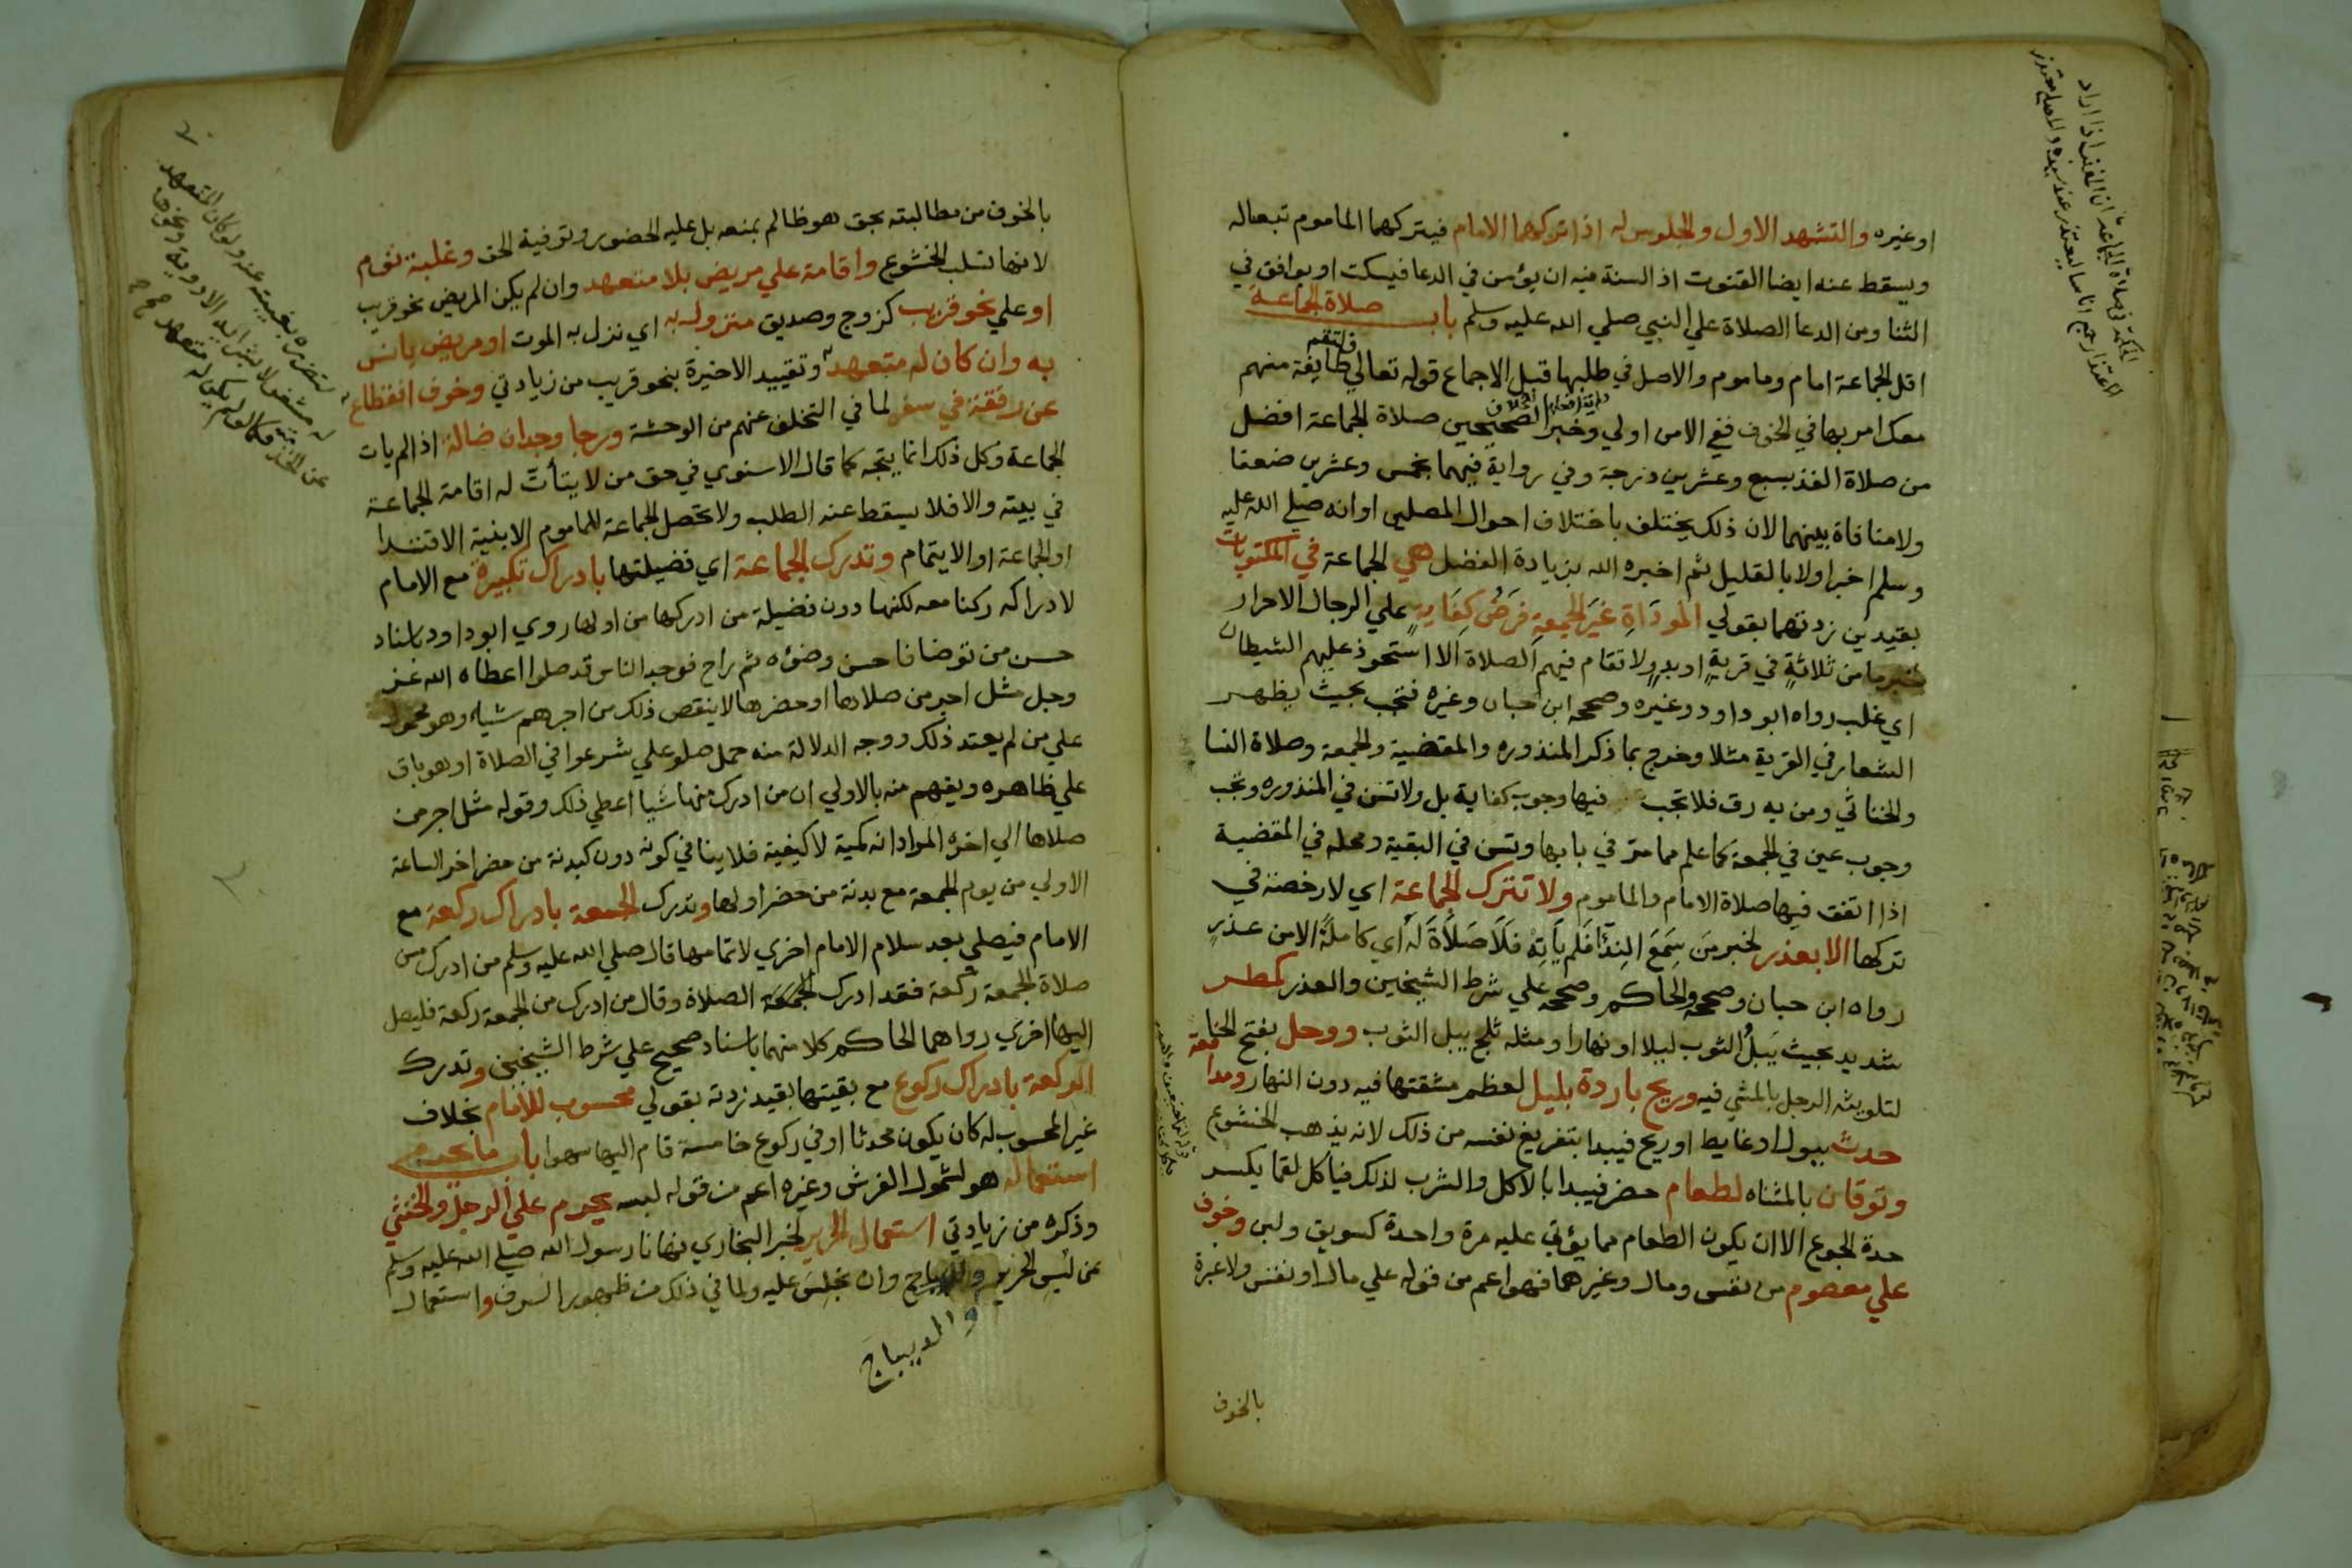 او غيره والتشهد الاول والجلوس له اذا تركهما الامام فيتركهما الماموم تبعا له
ويسقط عنه ايضا القنوت اذ السنة فيه ان يؤمن في الدعا فيسكت او يوافق في
الثنا ومن الدعا الصلاة علي النبي صلي الله عليه وسلم باب صلاة الجماعة
اقل الجماعة امام وماموم والاصل في طلبها قبل الاجماع قوله تعالي فلتقم طايفة منهم
معك امر بها في الخوف ففي الامن اولي وخبر الصحيحين صلاة الجماعة افضل
من صلاة الفذ بسبع وعشرين درجة وفي رواية فيهما بخمس وعشرين ضعفا
ولا منافاة بينهما لان ذلك يختلف باختلاف احوال المصلين او انه صلي الله عليه
وسلم اخبر اولا بالقليل ثم اخبره الله بزيادة الفضل هي الجماعة في المكتوبات
بقيدين زدتهما بقولي المؤداة غير الجمعة فرض كفاية علي الرجال الاحرار
لخبر ما من ثلاثة في قرية او بدو لا تقام فيهم الصلاة الا استحوذ عليهم الشيطان
اي غلب رواه ابو داود وغيره وصححه ابن حبان وغيره فتجب بحيث يظهر
الشعار في القرية مثلا وخرج بما ذكر المنذوره والمقضية والجمعة وصلاة النسا
والخناثي ومن به رق فلا تجب فيها وجوب كفاية بل ولا تسن في المنذوره وتجب
وجوب عين في الجمعة كما علم مما مر في بابها وتسن في البقية ومحله في المقضية
اذا اتفق فيها صلاة الامام والماموم ولا تترك الجماعة اي لا رخصة في
تركها الا بعذر لخبر من سمع الندا فلم ياته فلا صلاة له اي كاملة الا من عذر
رواه ابن حبان وصححه والحاكم وصححه علي شرط الشيخين والعذر كمطر
شديد بحيث يبل الثوب ليلا او نهارا ومثله ثلج يبل الثوب ووحل بفتح الحا
لتلويثه الرجل بالمشي فيه وريح باردة بليل لعظم مشقتها فيه دون النهار ومدافعة
حدث ببول او غايط او ريح فيبدا بتفريغ نفسه من ذلك لانه يذهب الخشوع
وتوقان بالمثناه لطعام حضر فيبدا بالاكل والشرب لذلك فياكل لقما يكسر
حدة الجوع الا ان يكون الطعام مما يؤتي عليه مرة واحدة كسويق ولبن وخوف
علي معصوم من نفس ومال وغيرهما فهو اعم من قوله علي مال او نفس ولا عبرة
بالخوف
بالخوف من مطالبته بحق هو ظالم بمنعه بل عليه الحضور وتوفية الحق وغلبة نوم
لانها تسلب الخشوع واقامة علي مريض بلا متعهد وان لم يكن المريض نحو قريب
او علي نحو قريب كزوج وصديق منزول به اي نزل به الموت او مريض يانس
به وان كان له متعهد وتقييد الاخيرة بنحو قريب من زيادتي وخوف انقطاع
عن رفقة في سفر لما في التخلف عنهم من الوحشة ورجا وجدان ضالة اذا لم يات
الجماعة وكل ذلك انما يتجه كما قال الاسنوي في حق من لا يتأت له اقامة الجماعة
في بيته والا فلا يسقط عنه الطلب ولا تحصل الجماعة للماموم الا بنية الاقتدا
او الجماعة او الايتمام وتدرك الجماعة اي فضيلتها بادراك تكبيرة مع الامام
لادراكه ركنا معه لكنها دون فضيلة من ادركها من اولها روي ابو داود باسناد
حسن من توضا فاحسن وضؤه ثم راح فوجد الناس قد صلوا اعطاه الله عز
وجل مثل اجر من صلاها او حضرها لا ينقص ذلك من اجرهم شيا وهو محمول
علي من لم يعتد ذلك ووجه الدلالة منه حمل صلوا علي شرعوا في الصلاة او هو باق
علي ظاهره ويفهم منه بالاولي ان من ادرك منها شيا اعطي ذلك وقوله مثل اجر من
صلاها الي اخره المراد انه كمية لا كيفية فلا ينافي كونه دون كبدنة من حضر اخر الساعة
الاولي من يوم الجمعة مع بدنة من حضر اولها وتدرك الجمعة بادراك ركعة مع
الامام فيصلي بعد سلام الامام اخري لاتمامها قال صلي الله عليه وسلم من ادرك من
صلاة الجمعة ركعة فقد ادرك الصلاة وقال من ادرك من الجمعة ركعة فليصل
اليها اخري رواهما الحاكم كلا منهما باسناد صحيح علي شرط الشيخين وتدرك
الركعة بادراك ركوع مع بقيتها بقيد زدته بقولي محسوب للامام بخلاف
غير المحسوب له كان يكون محدثا او في ركوع خامسة قام اليها سهوا باب ما يحرم
استعماله هو لشموله الفرش وغيره اعم من قوله لبسه يحرم علي الرجل والخنثي
وذكره من زيادتي استعمال الحرير لخبر البخاري نهانا رسول الله صلي الله عليه وسلم
عن لبس الحرير والديباج وان نجلس عليه ولما في ذلك من ظهور السرف واستعمال
والديباج